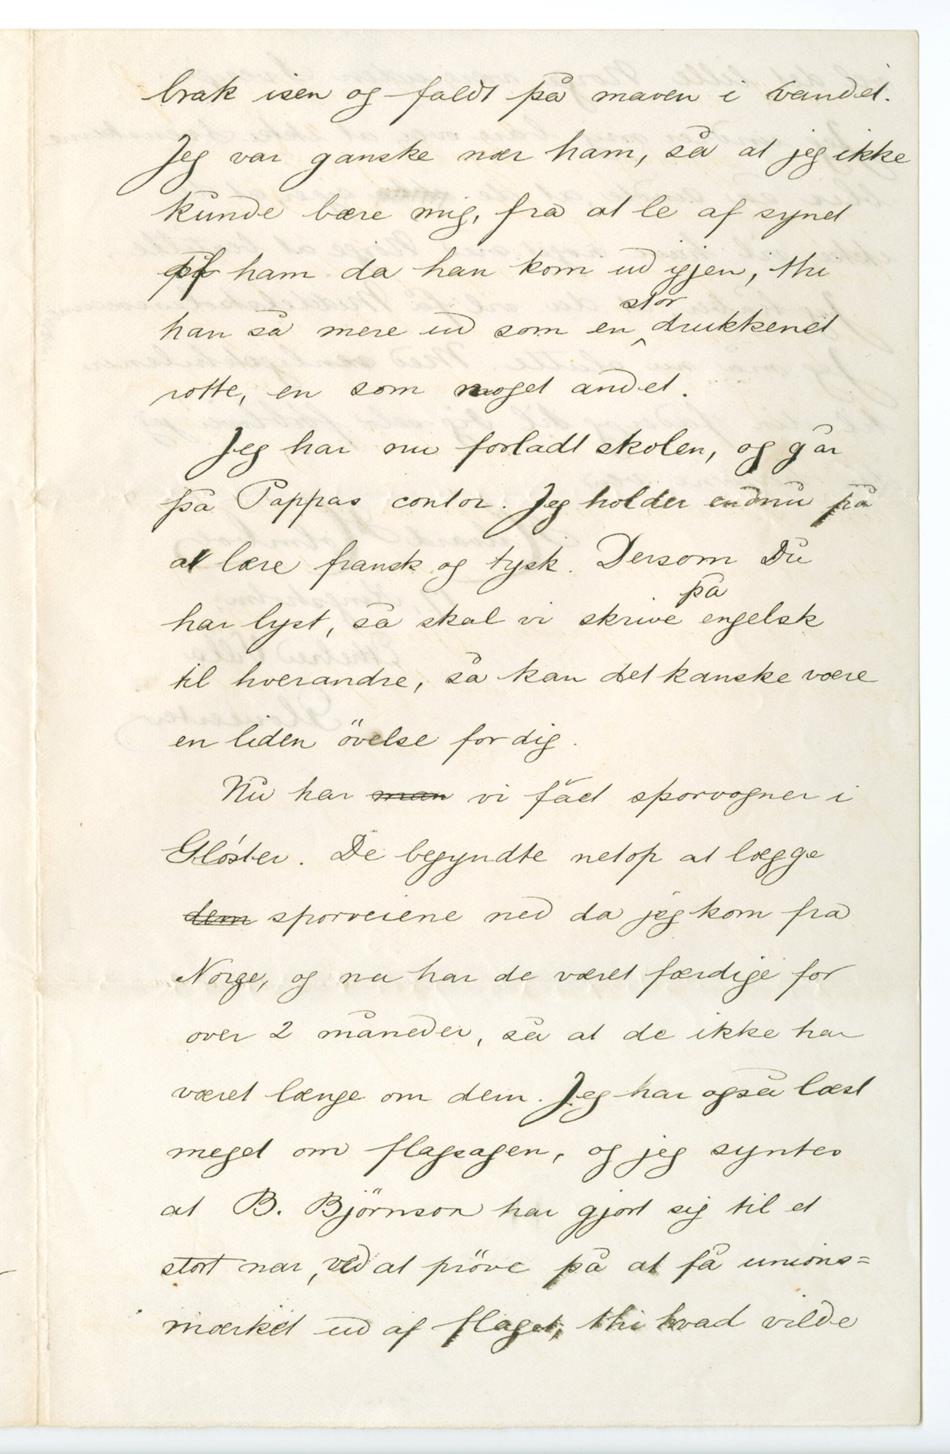 brak isen og faldt på maven i vandet.
Jeg var ganske nær ham, så at jeg ikke
kunde bære mig, fra at le af synet
af ham da han kom ud igjen, thi
han så mere ud som en stor drukkenet
rotte, en som noget andet.
Jeg har nu forladt skolen, og går
på Pappas contor. Jeg holder endnu på
at lære fransk og tysk. Dersom Du
har lyst, så skal vi skrive på engelsk
til hverandre, så kan det kanske være
en liden övelse for dig.
Nu har man vi fået sporvogner i
Glóster. De begyndte netop at lægge
dem sporveiene ned da jeg kom fra
Norge, og nu har de været færdige for
over 2 måneder, så at de ikke har
været længe om dem. Jeg har også læst
meget om flagsagen, og jeg syntes
at B. Björnson har gjort sig til et
stort nar, ved at pröve på at få unions=
mærket ud af flaget, thi hvad vilde